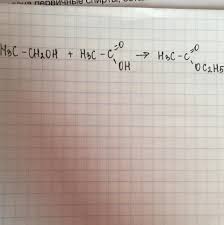 одна первичные спирты,
H3C - CH2OH + H3C - C =O OH → H3C - C =O OC2H5